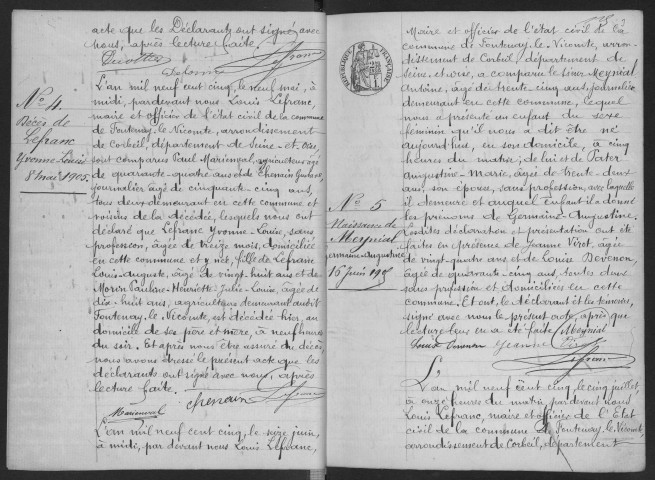 acte que les Déclarants ont signé avec
nous, après lecture faite.
Lefranc
No 4.
Décès de
Lefranc
Yvonne Louise
8 mai 1905.
L'an mil neuf cent cinq, le neuf mai, à
midi, pardevant nous Louis Lefranc,
maire et officier de l'état civil de la commune
de Fontenay, le Vicomte, arrondissement
de Corbeil, département de Seine-et-Oise,
sont comparus Paul agriculteur âgé
de quarante-quatre ans et de Chenain Gustave
journalier âgé de cinquante-cinq ans,
tous deux demeurant en cette commune et
voisins de la décédée, lesquels nous ont
déclaré que Lefranc Yvonne-Louise, sans
profession, âgée de treize mois, domiciliée
en cette commune et y née, fille de Lefranc
Louis-Auguste, âgé de vingt-huit ans et de
Morin Pauline-Henriette-Julie-Louise, âgée de
dix-huit ans, agriculteurs demeurant audit
Fontenay, le Vicomte, est décédée hier, au
domicile de ses père et mère, à neuf heures
du soir. Et après nous être assuré du décès,
nous avons dressé le présent acte que les
déclarants ont signé avec nous, après
lecture faite.
chenain Lefranc
L'an mil neuf cent cinq, le seize juin,
à midi, par devant nous Louis Lefranc,
Maire et officier de l'état civil de la
commune de Fontenay, le Vicomte, arron-
dissement de Corbeil, département de
Seine-et-Oise, a comparu le sieur Meynial
Antoine, âgé de trente-cinq ans, journalier
demeurant en cette commune, lequel
nous a présenté un enfant du sexe
féminin qu'il nous a dit être né
aujourd'hui, en son domicile, à cinq
heures du matin, de lui et de Pater
Augustine-Marie, âgée de trente-deux
ans, son épouse, sans profession, avec laquelle
il demeure et auquel enfant il a donné
les prénoms de Germaine-Augustine.
RÉPUBLIQUE FRANÇAISE
No 5
Naissance de
Meynial
Germaine Augustine
16 juin 1905
Lesdites déclaration et présentation ont été
faites en présence de Jeanne Virot, âgée
de vingt-quatre ans et de Louise Devenon,
âgée de quarante-cinq ans, toutes deux
sans profession et domiciliées en cette
commune. Et ont, le déclarant et les témoins,
signé avec nous le présent acte, après que
lecture leur en a été faite. Meynial
Louise Devenon Jeanne Virot
Lefranc
L'an mil neuf cent cinq, le cinq juillet,
à onze heures du matin, par devant nous
Louis Lefranc, maire et officier de l'Etat
civil de la commune de Fontenay, le Vicomte,
arrondissement de Corbeil, département